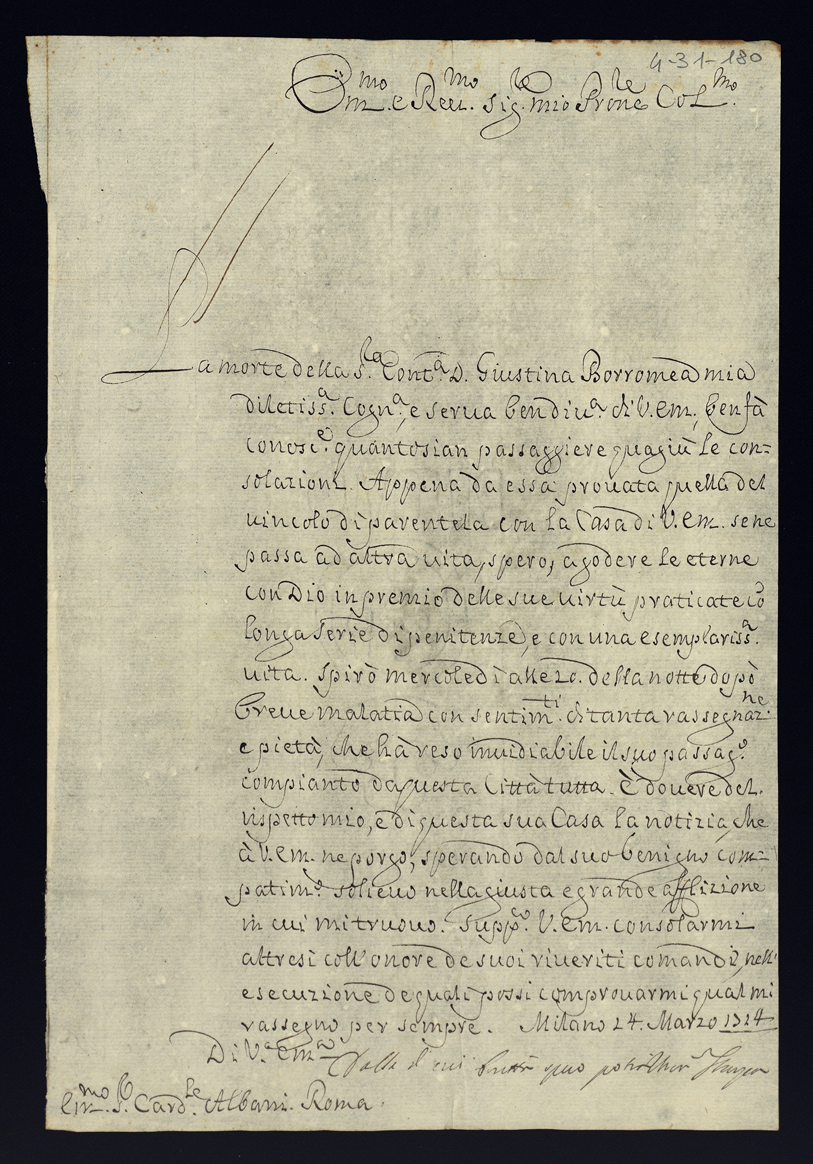 4-31-180
Em.mo e Rev.mo Sig.re mio Prone Col.mo
La morte della S.ra Cont.a D. Giustina Borromea mia
diletiss.a Cogn.a, e serua ben diu.a di V. Em., ben fà
conosc.e quanto sian passaggiere quagiù le con=
solazioni. Appena da essa prouata quella del
uincolo di parentela con la Casa di V. Em. se ne
passa ad altra uita, spero, a godere le eterne
con Dio in premio delle sue uirtù praticate cõ
longa serie di penitenze, e con una esemplariss.a
uita. Spirò mercoledì alle 20. della notte dopò
breue malatia con sentim.ti di tanta rassegnaz.ne
e pietà, che hà reso inuidiabile il suo passag.o
compianto da questa Città tutta. È douere del
rispetto mio, e di questa sua Casa la notizia, che
à V. Em. ne porgo, sperando dal suo benigno com=
patim.o solieuo nella giusta e grande afflizione
in cui mi truouo. Supp.co V. Em. consolarmi
altresì coll'onore de suoi riueriti comandi, nell'
esecuzione de quali possi comprouarmi qual mi
rassegno per sempre. Milano 24. Marzo 1714
Di V.a Em.a
Em.mo S. Card.le Albani. Roma.